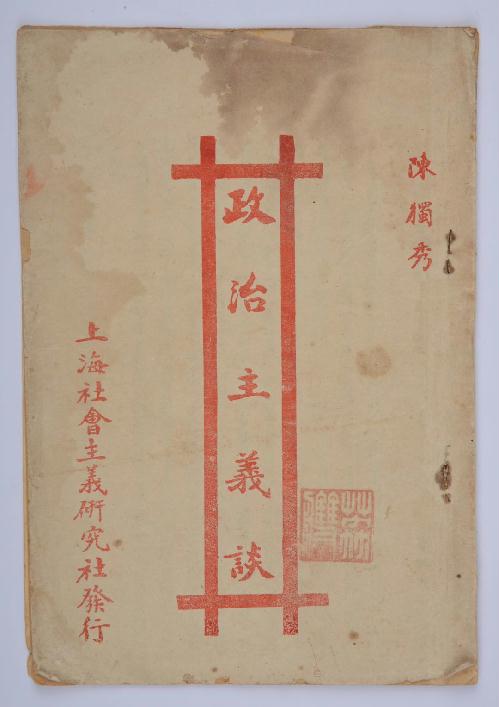 陳獨秀
政治主義談
上海社會主義研究社發行